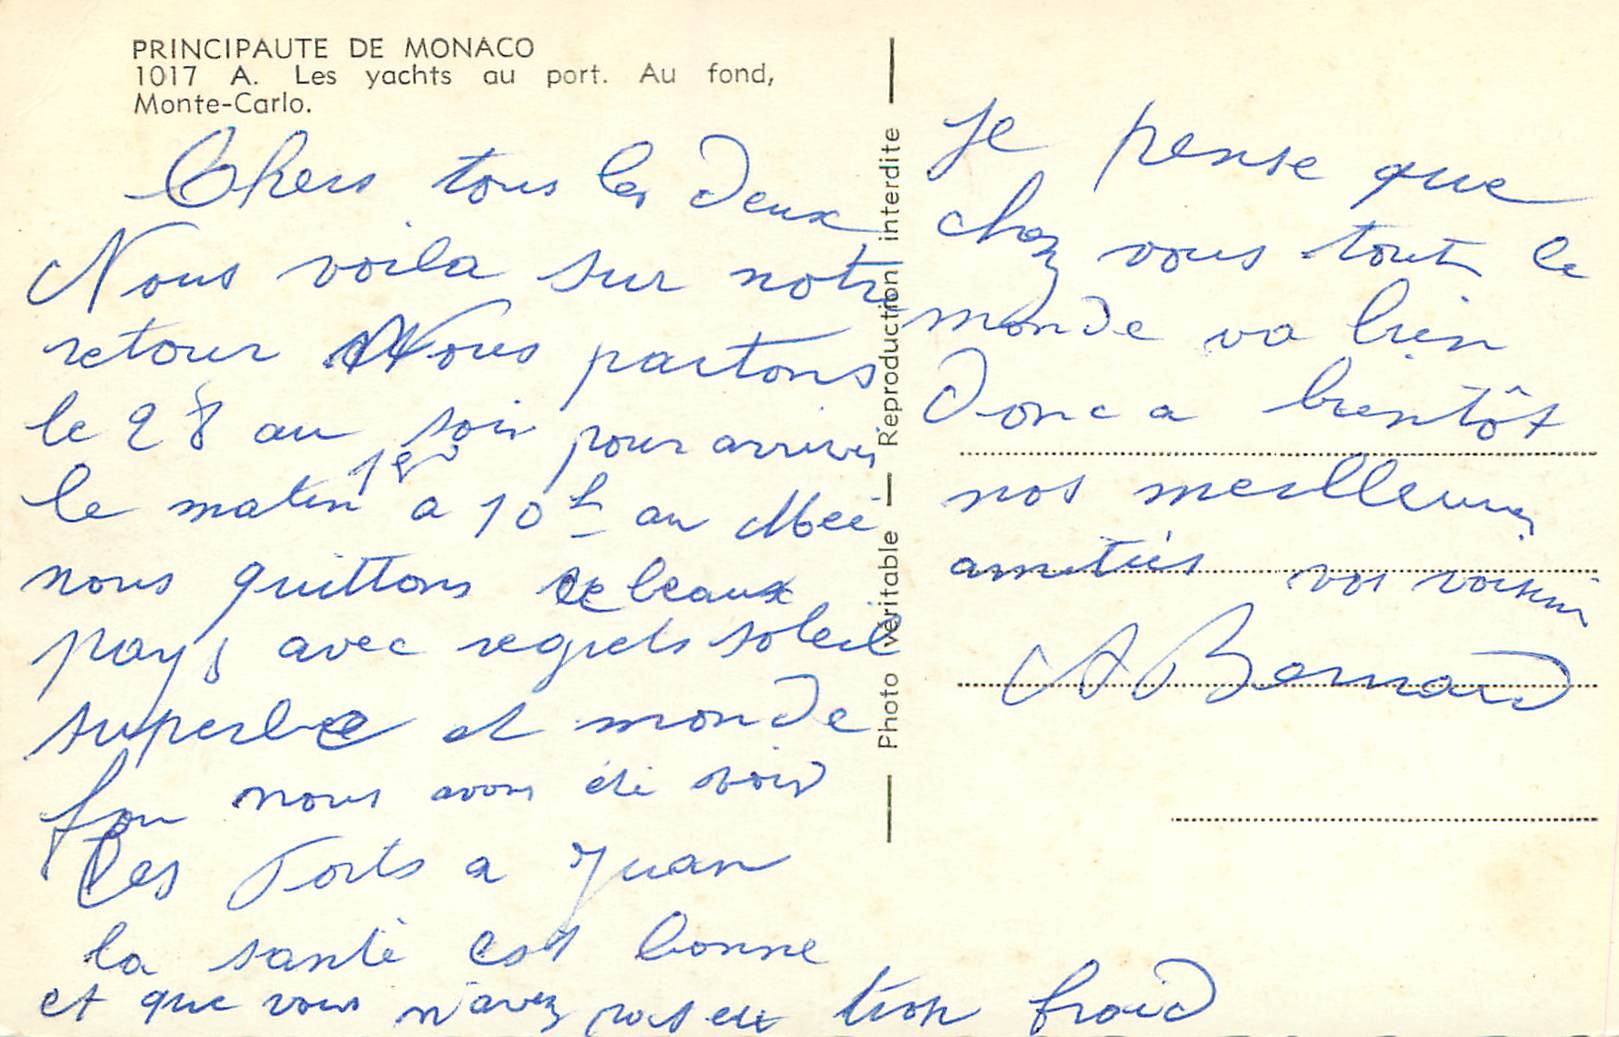 PRINCIPAUTE DE MONACO
1017 A. Les yachts au port. Au fond,
Monte-Carlo.
Chers tous les deux
Nous voila sur notre
retour Nous partons
le 28 au soir pour arriver
le matin 1er a 10h au Mée
nous quittons ce beaux
pays avec regrets soleil
superbe et monde
fou nous avons été voir
les Forts a Juan
la santé est bonne
et que vous n'avez pas eu trop froid
Photo véritable — Reproduction interdite
Je pense que
chez vous tout le
monde va bien
Donc a bientôt
nos meilleures
amitiés vos voisins
A Bernard